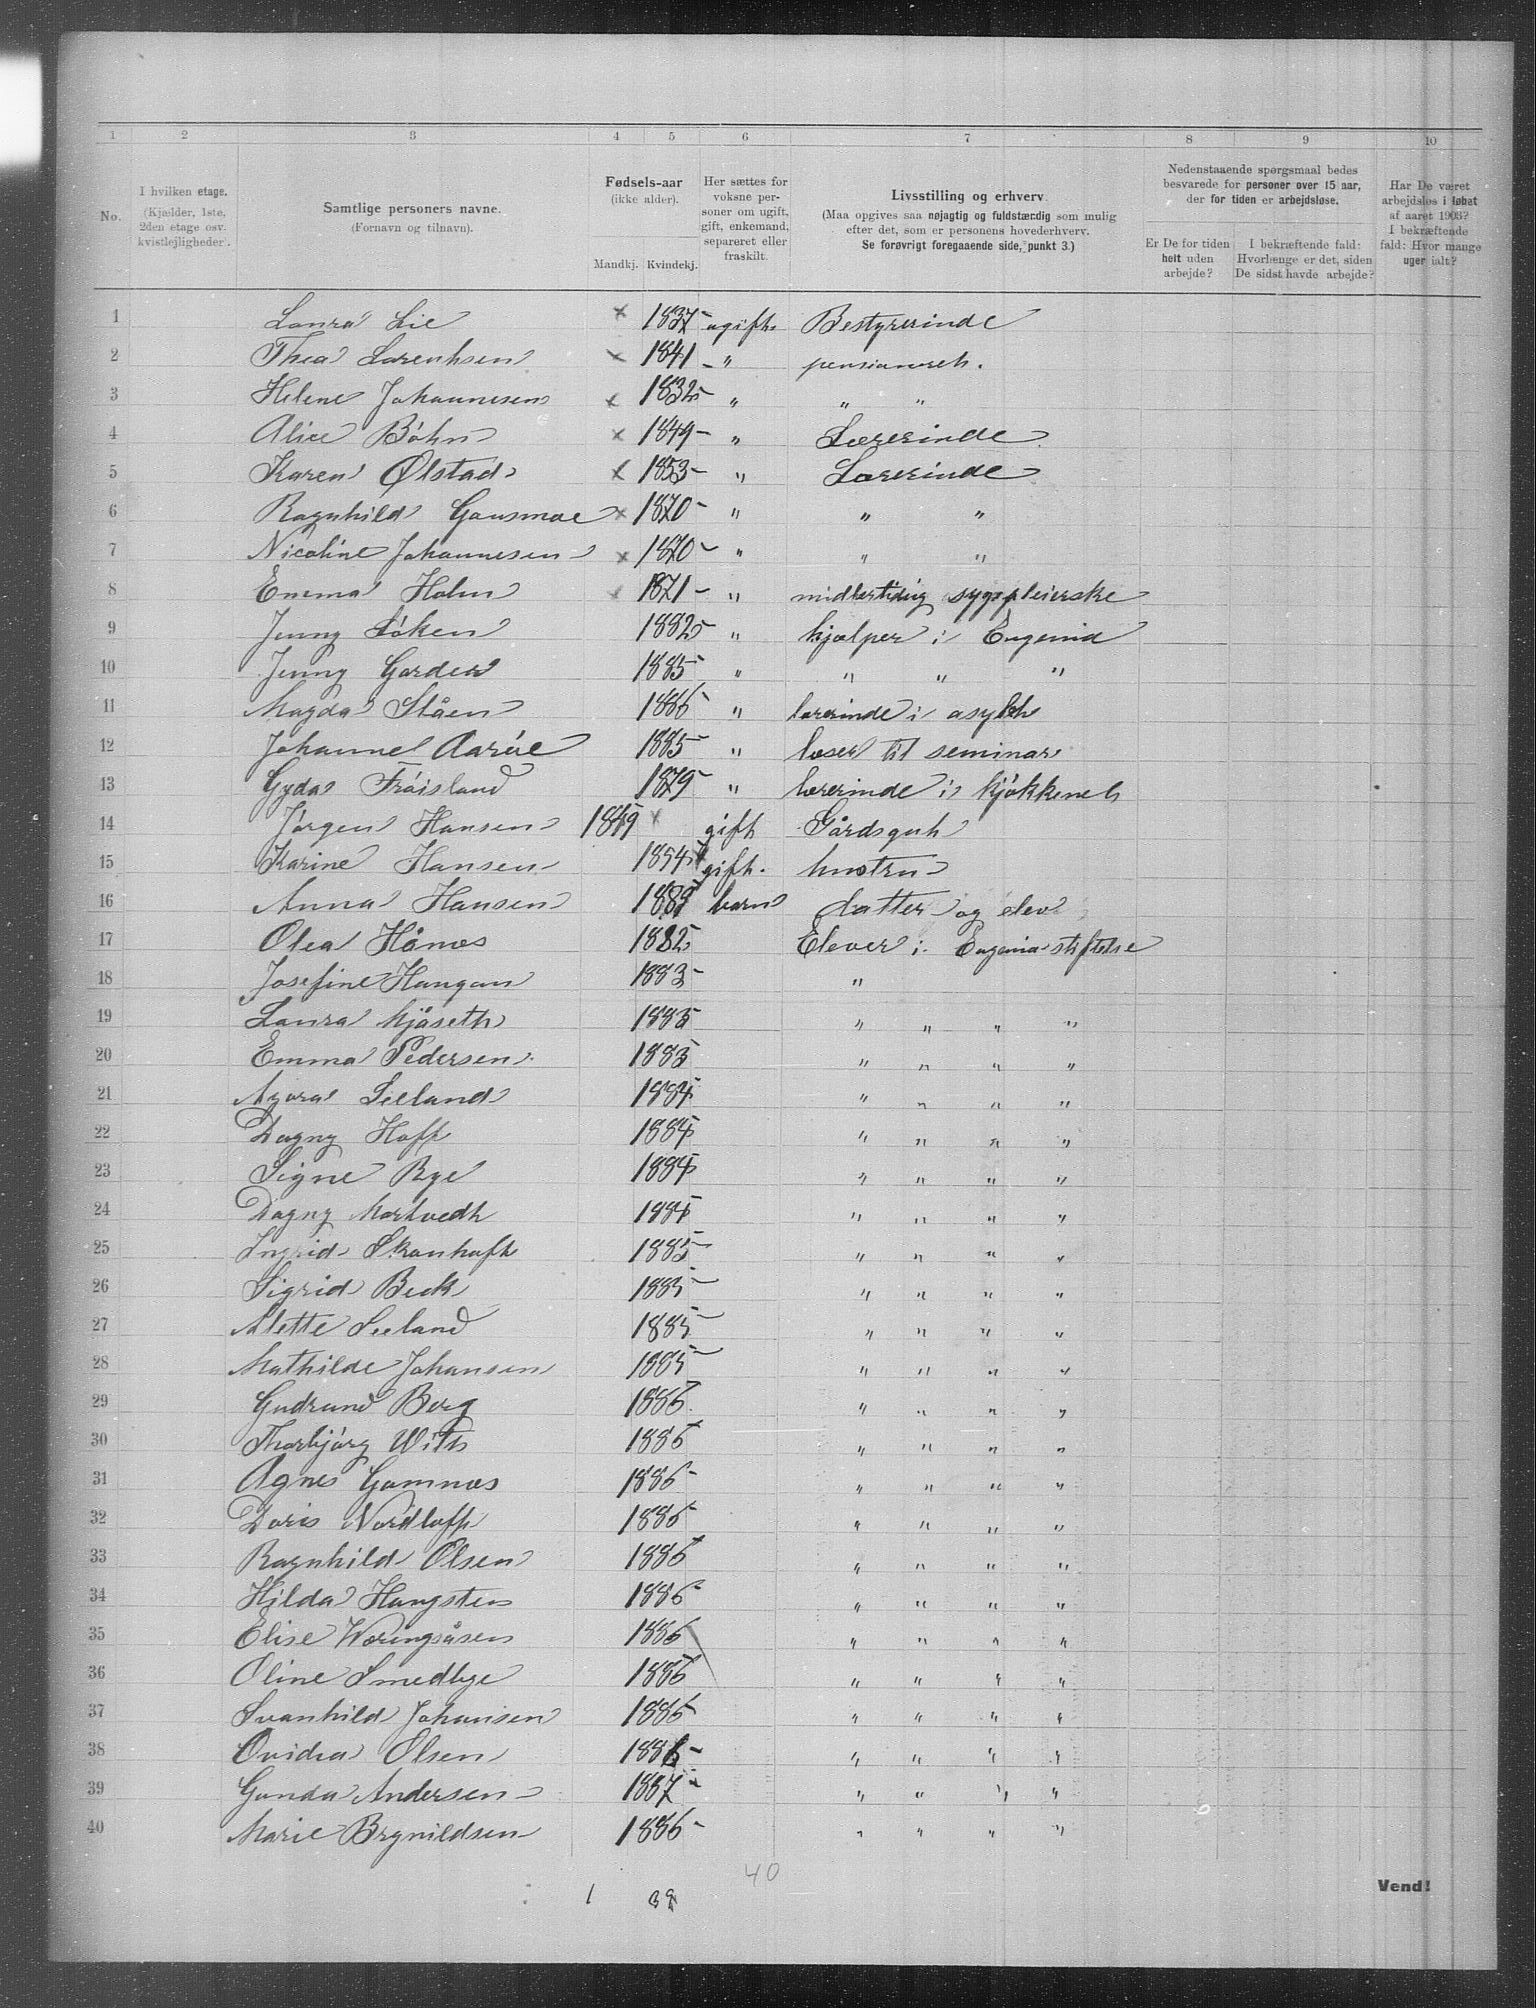 1 2 3 4 5 6 7 8 9 10
No.
I hvilken etage.
(Kjælder, 1ste, 2den etage osv. kvistlejligheder).
Samtlige personers navne.
(Fornavn og tilnavn).
Fødsels-aar
(ikke alder).
Mandkj. Kvindekj.
Her sættes for voksne personer om ugift, gift, enkemand, separeret eller fraskilt.
Livsstilling og erhverv.
(Maa opgives saa nøjagtig og fuldstærdig som mulig efter det, som er personens hovederhverv.
Se forøvrigt foregaaende side, punkt 3.)
Nedenstaaende spørgsmaal bedes besvarede for personer over 15 aar, der for tiden er arbejdsløse.
Er De for tiden helt uden arbejde?
I bekræftende fald: Hvorlænge er det, siden De sidst havde arbejde?
Har De været arbejdsløs i løbet af aaret 1903?
I bekræftende fald: Hvor mange uger ialt?
1 Laura Lie × 1837 ugift. Bestyrerinde
2 Thea Lorentsen × 1841 " pensioneret.
3 Helene Johannesen × 1832 " " "
4 Alice Böhn × 1849 " Lærerinde
5 Karen Ølstad × 1853 " Lærerinde
6 Ragnhild Gausmoe × 1870 " " "
7 Nicoline Johannesen × 1870 " " "
8 Emma Holm × 1871 " midlertidig sygepleierske
9 Jenny Löken 1882 " hjælper i Eugenia
10 Jenny Garder 1885 " " " "
11 Magda Slåen 1886 " lærerinde i asylet
12 Johanne Aaröe 1885 " læser til seminar
13 Gyda Fröisland 1879 " lærerinde i kjökkenet
14 Jörgen Hansen 1849 × gift Gårdsgut
15 Karine Hansen 1854 gift. hustru
16 Anna Hansen 1889 barn datter og elev
17 Olea Hånes 1882 Elever i Eugenia stiftelse
18 Josefine Haugan 1883 "
19 Laura Kjöseth 1883 " " " "
20 Emma Pedersen 1883 " " " "
21 Agora Seeland 1884 " " " "
22 Dagny Hoff 1884 " " " "
23 Signe Bye 1884 " " " "
24 Dagny Martvedt 1884 " " " "
25 Ingrid Skanhoft 1885 " " " "
26 Sigrid Beck 1885 " " " "
27 Alette Seeland 1885 " " " "
28 Mathilde Johansen 1885 " " " "
29 Gudrund Berg 1886 " " " "
30 Thorbjörg With 1886 " " " "
31 Agnes Gamnæs 1886 " " " "
32 Doris Nordloff 1886 " " " "
33 Ragnhild Olsen 1886 " " " "
34 Hilda Haugsten 1886 " " " "
35 Elise Wæringsåsen 1886 " " " "
36 Oline Smedbye 1886 " " " "
37 Svanhild Johansen 1886 " " " "
38 Ovidia Olsen 1886 " " " "
39 Gunda Andersen 1887 " " " "
40 Marie Brynildsen 1886 " " " "
40
1
Vend!